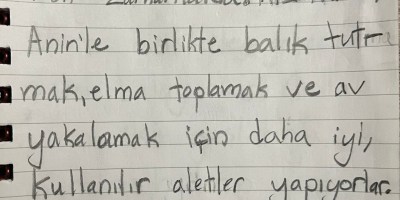 Anin'le birlikte balık tut-
mak, elma toplamak ve av
yakalamak için daha iyi,
kullanılır aletler yapıyorlar.